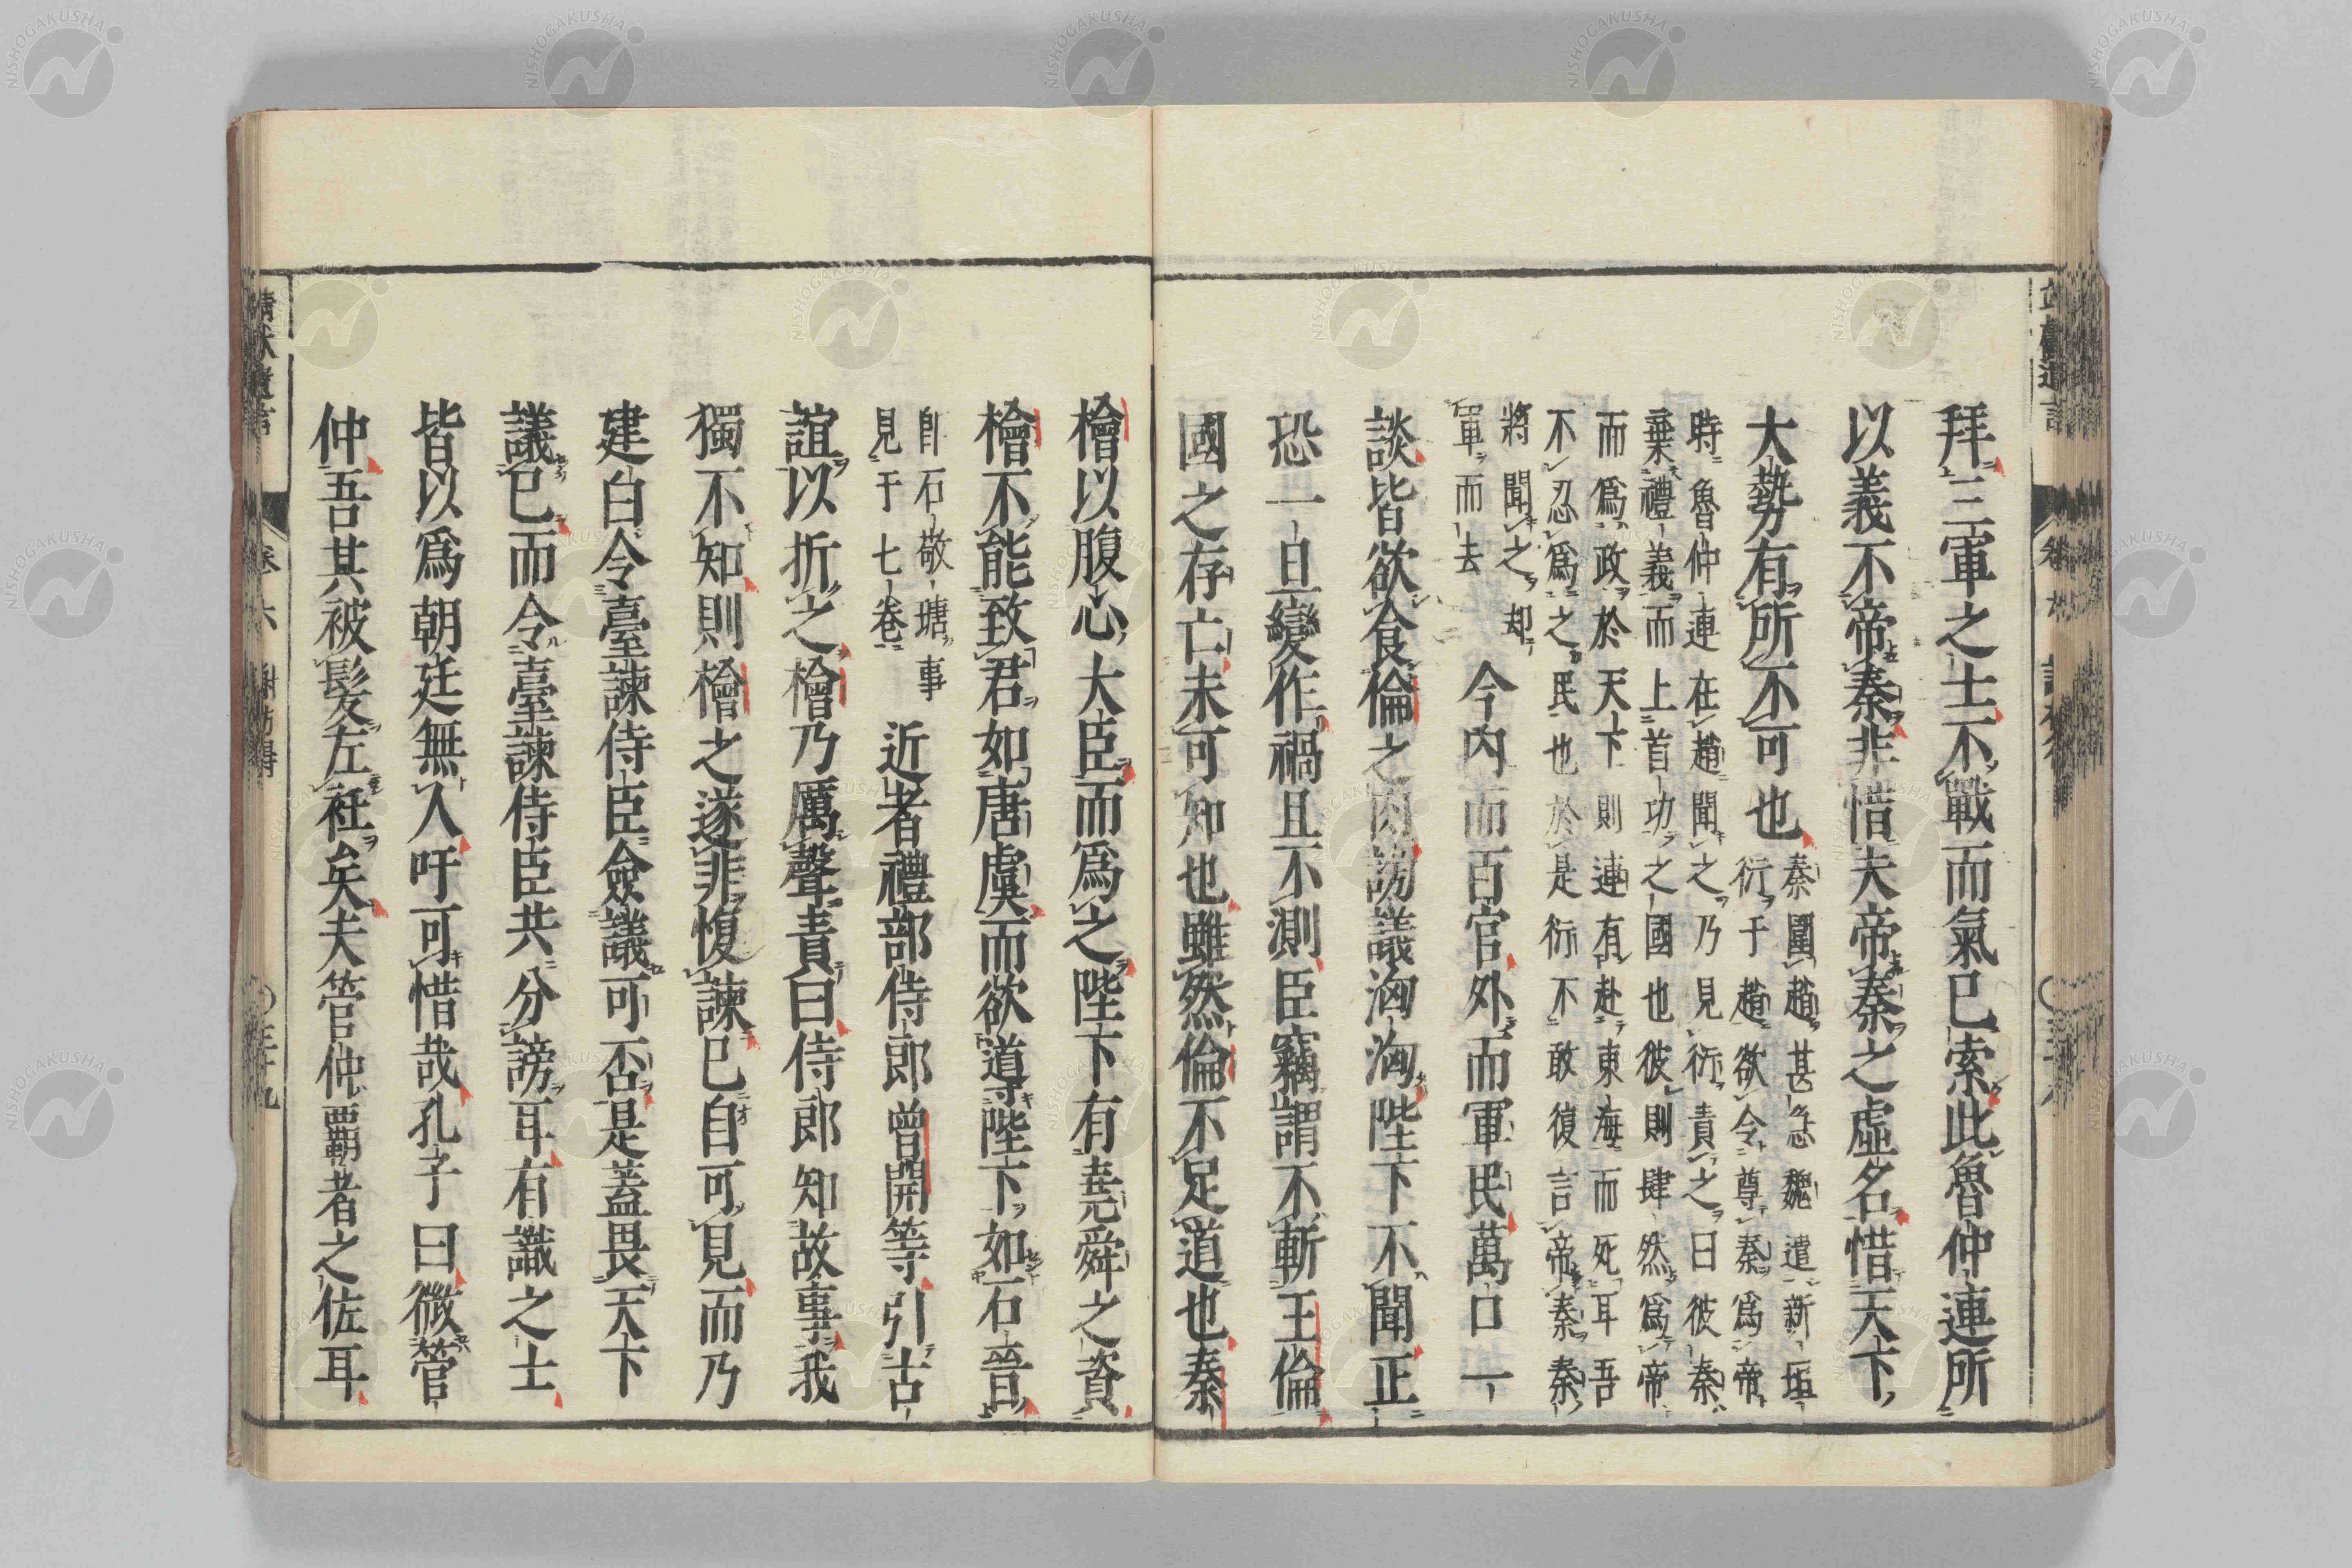 拜三軍之士不戰而氣已索此魯仲連所
以義不帝秦非惜夫帝秦之虛名惜天下
大勢有所不可也
秦圍趙甚急魏遣新垣
衍于趙欲令尊秦爲帝
時魯仲連在趙聞之乃見衍責之曰彼秦
棄禮義而上首功之國也彼則肆然爲帝
而爲政於天下則連有赴東海而死耳吾
不忍爲之民也於是衍不敢復言帝秦秦
將聞之却
軍而去
今內而百官外而軍民萬口一
談皆欲食倫之肉謗議洶洶陛下不聞正
恐一旦變作禍且不測臣竊謂不斬王倫
國之存亡未可知也雖然倫不足道也秦
檜以腹心大臣而爲之陛下有堯舜之資
檜不能致君如唐虞而欲導陛下如石晉
卽石敬瑭事
見于七卷
近者禮部侍郎曾開等引古
誼以折之檜乃厲聲責曰侍郎知故事我
獨不知則檜之遂非愎諫已自可見而乃
建白令臺諫侍臣僉議可否是蓋畏天下
議已而令臺諫侍臣共分謗耳有識之士
皆以爲朝廷無人吁可惜哉孔子曰微管
仲吾其被髮左衽矣夫管仲覇者之佐耳
靖獻遺言 卷六 謝枋得 三十九
NISHOGAKUSHA